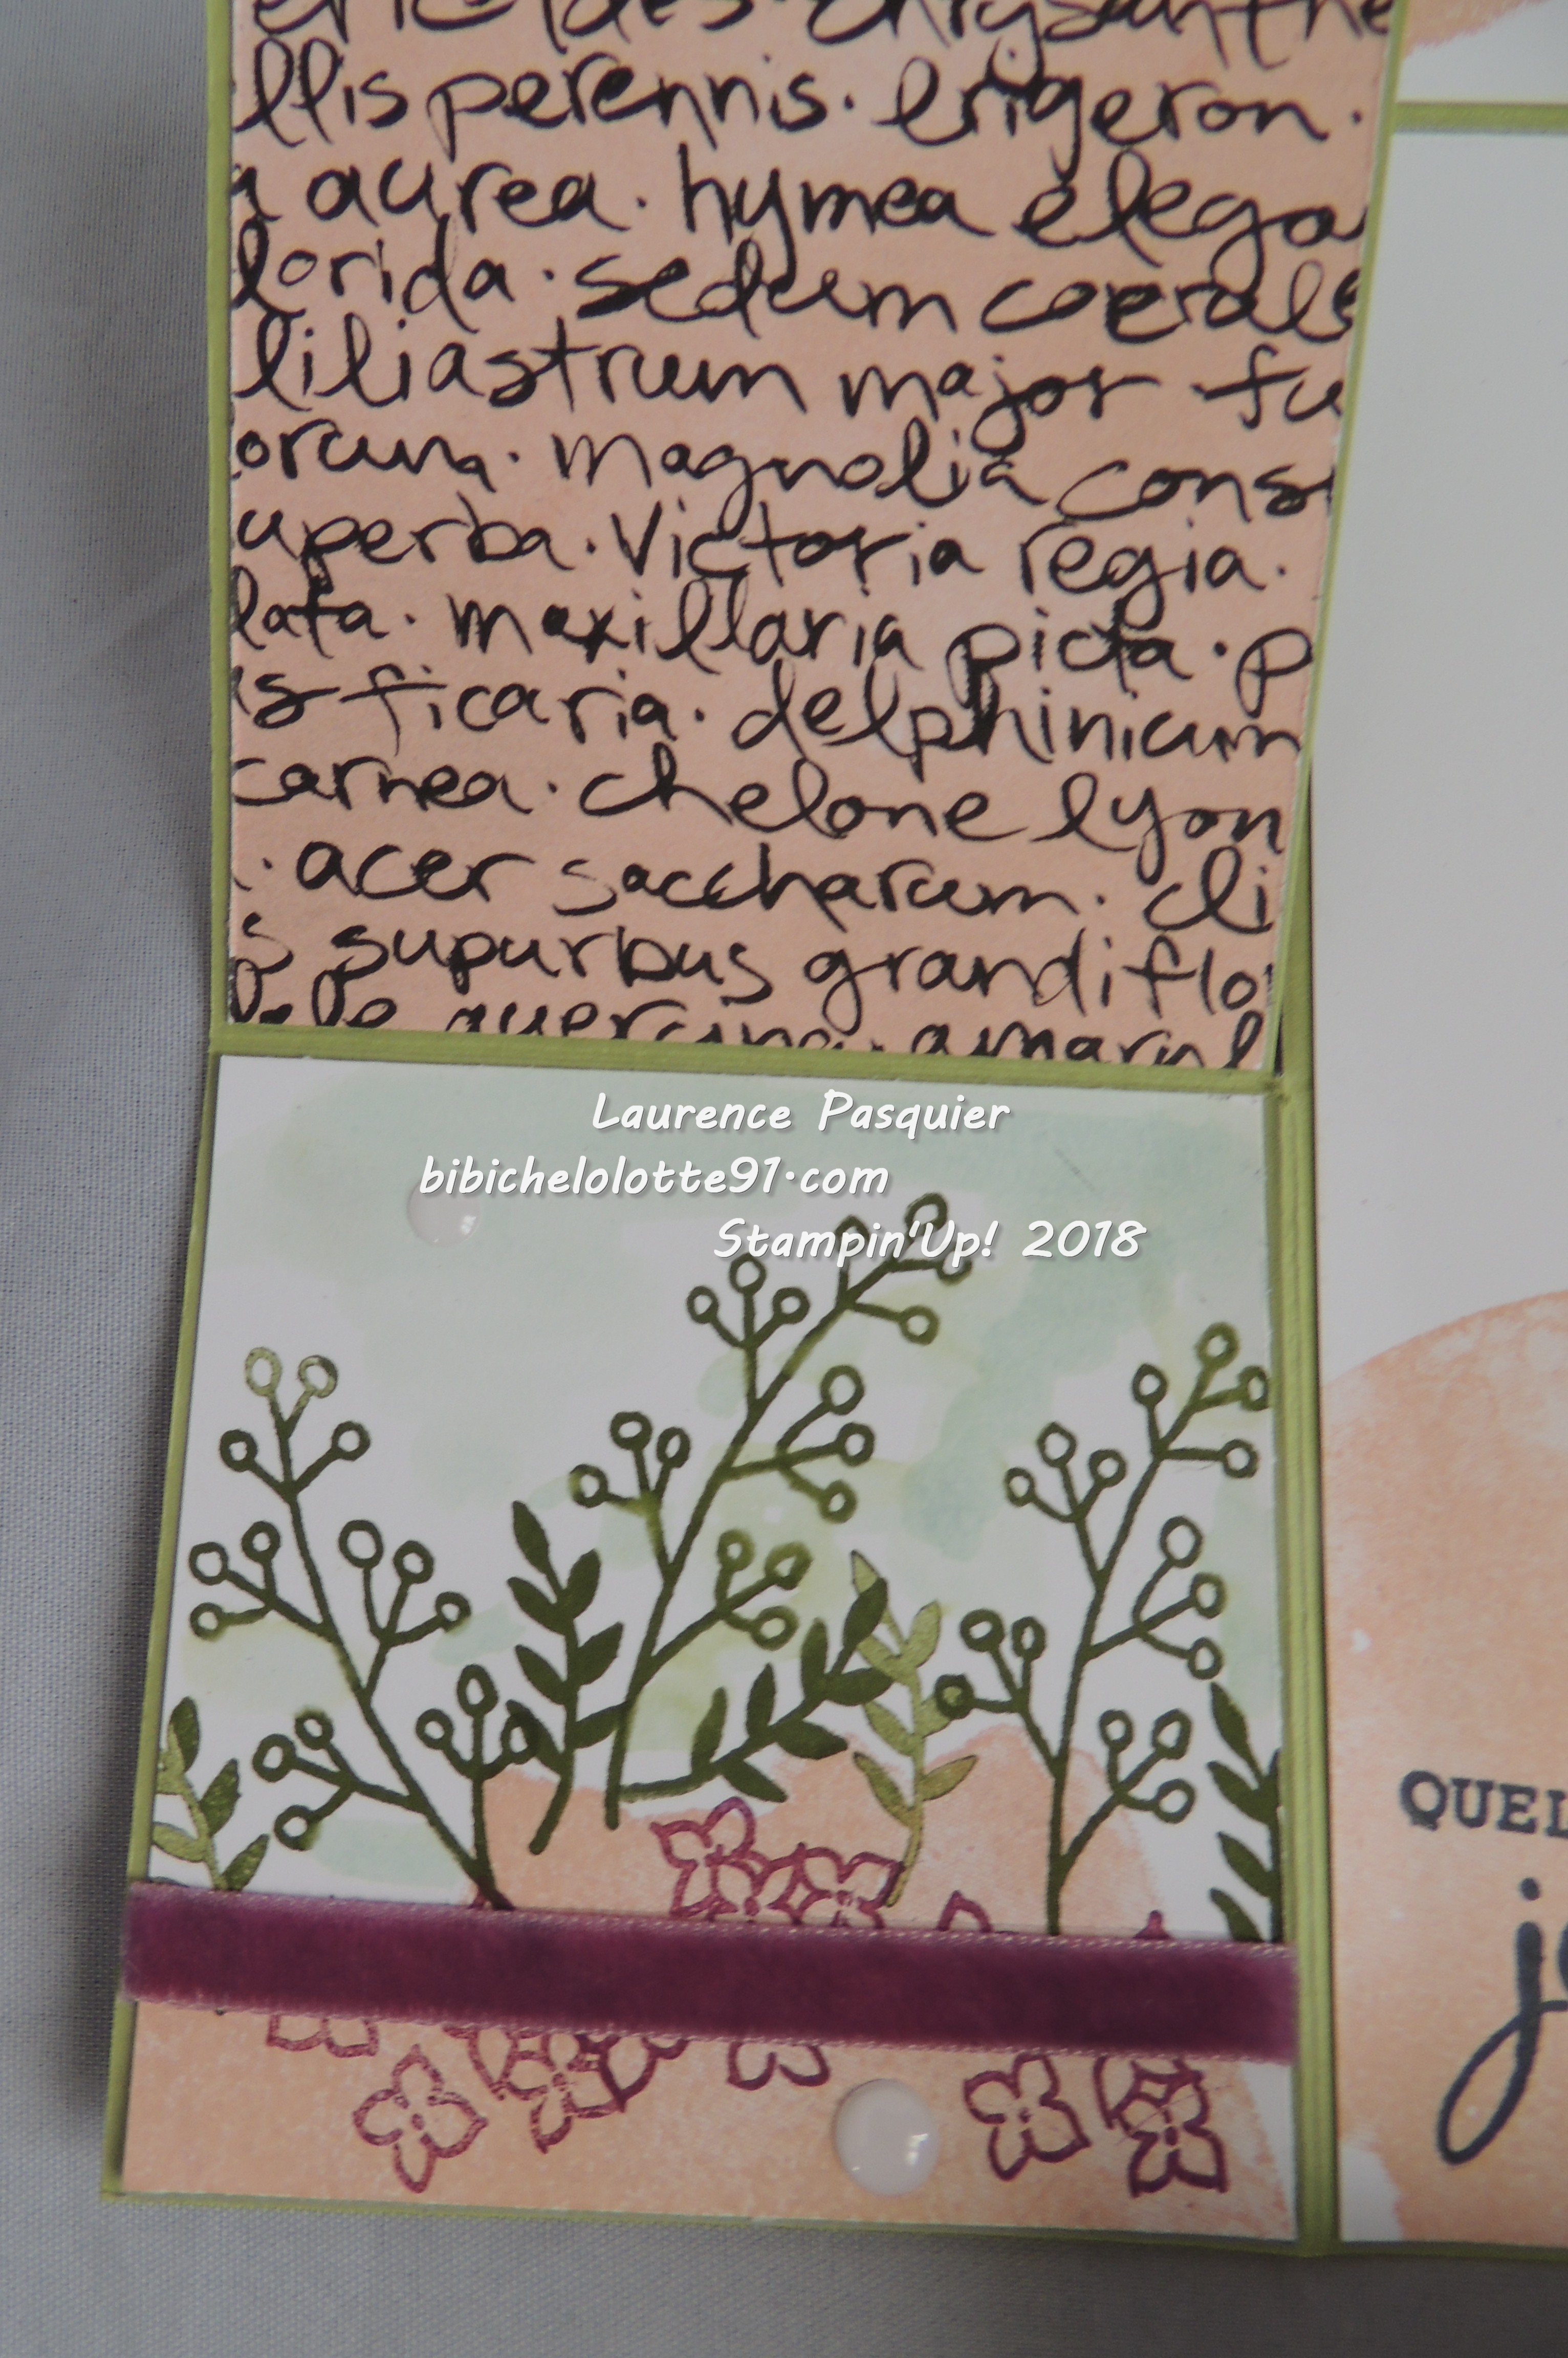 llis perennis. erigeron.
aurea. hymea elega
lorida. sedum coerule
liliastrum major fu
orcuna. magnolia cons
uperba. Victoria regia.
lata. maxillaria picta. p
is ficaria. delphinicum
carnea. chelone lyon
. acer saccharum. cli
s supurbus grandiflo
Laurence Pasquier
bibichelolotte91.com
Stampin'Up! 2018
QUEL
j